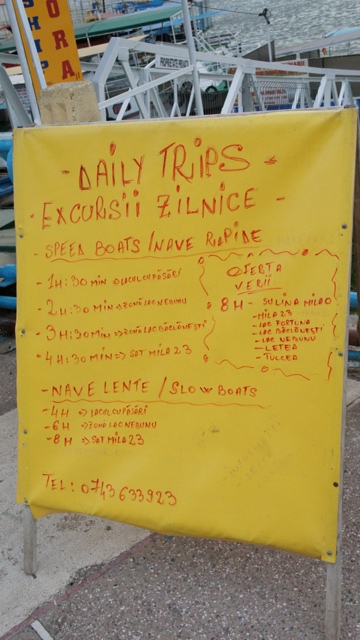 ORA
SHIP
PROPRIETATE PRIVATA
- DAILY TRIPS -
- EXCURSII ZILNICE -
- SPEED BOATS / NAVE RAPIDE
- 1H:30 MIN => LACUL CU PĂSĂRI
- 2H:30 MIN => ZONĂ LAC NEBUNU
- 3H:30 MIN => ZONĂ LAC BĂCLĂNEȘTI
- 4H:30 MIN => SAT MILA 23
OFERTA
VERII
8H - SULINA
- MILA 23
- LAC FORTUNA
- LAC BĂCLĂNEȘTI
- LAC NEBUNU
- LETEA
- TULCEA
- NAVE LENTE / SLOW BOATS
- 4H => LACUL CU PĂSĂRI
- 6H => ZONĂ LAC NEBUNU
- 8H => SAT MILA 23
TEL: 0743 633923